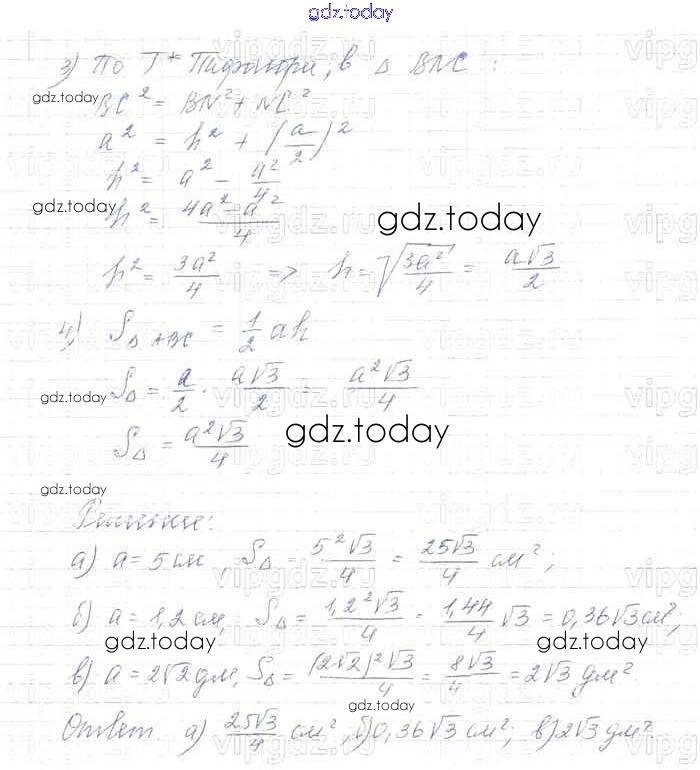 gdz.today
3) По Т* Пифагора, в △ BNC :
gdz.today
BC² = BN² + NC²
a² = h² + (a/2)²
h² = a² - a²/4
gdz.today
h² = 4a² - a²/4
gdz.today
h² = 3a²/4 => h = √3a²/4 = a√3/2
4) S△ABC = 1/2 ah
S△ = a/2 · a√3/2 = a²√3/4
gdz.today
S△ = a²√3/4
gdz.today
gdz.today
Решение:
а) a = 5 см, S△ = 5²√3/4 = 25√3/4 см²;
б) a = 1,2 см, S△ = 1,2²√3/4 = 1,44/4 √3 = 0,36√3 см²,
gdz.today gdz.today
в) a = 2√2 дм, S△ = (2√2)²√3/4 = 8√3/4 = 2√3 дм².
gdz.today
Ответ. а) 25√3/4 см², б) 0,36√3 см²; в) 2√3 дм².